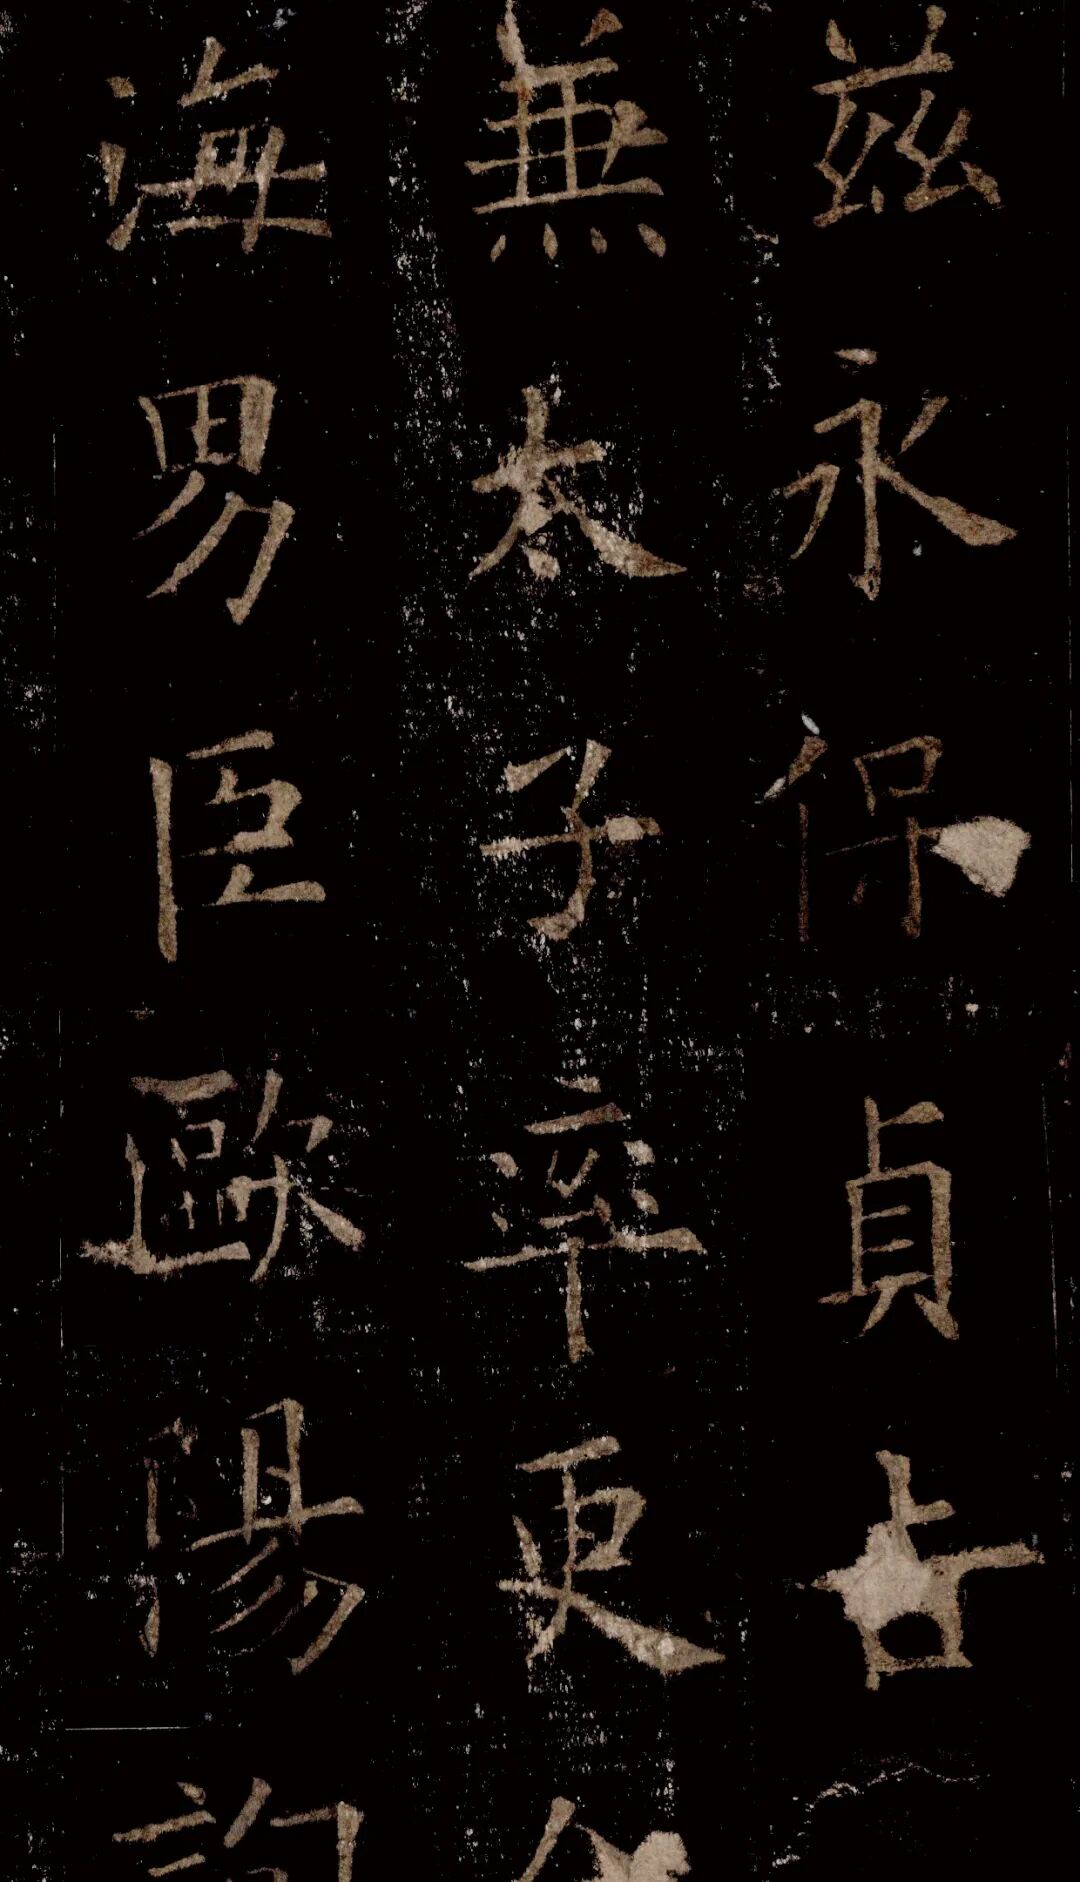 兹永保貞吉
兼太子率更令
海男臣歐陽詢